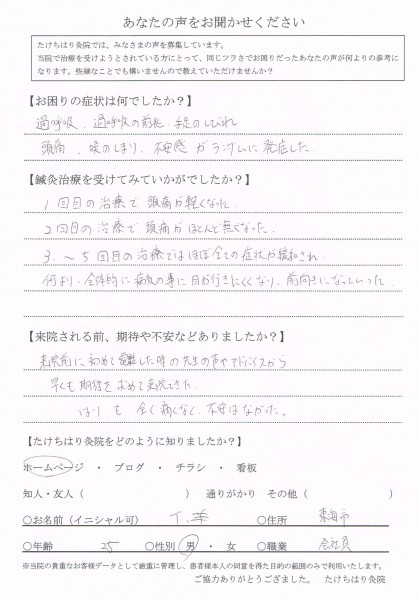 あなたの声をお聞かせください
たけちはり灸院では、みなさまの声を募集しています。
当院で治療を受けようとされている方にとって、同じツラさでお困りだったあなたの声が何よりの参考に
なります。些細なことでも構いませんので教えていただけませんか？
【お困りの症状は何でしたか？】
過呼吸、過呼吸の前兆、手足のしびれ
頭痛、喉のしまり、不安感がランダムに発症した。
【鍼灸治療を受けてみていかがでしたか？】
1回目の治療で頭痛が軽くなった。
2回目の治療で頭痛がほとんど無くなった。
3.～5回目の治療ではほぼ全ての症状が緩和され、
何より、全体的に病気の事に目が行きにくくなり、前向きになっていった。
【来院される前、期待や不安などありましたか？】
来院前に初めて電話した時の先生の声やアドバイスから
早くも期待を求めて来院できた。
はりも全く痛くなく、不安はなかった。
【たけちはり灸院をどのように知りましたか？】
ホームページ ・ ブログ ・ チラシ ・ 看板
知人・友人（　　　　　　　　） 通りがかり その他（　　　　　　　　）
○お名前（イニシャル可） ○住所 東海市
○年齢 25 ○性別 男 ・ 女 ○職業 会社員
※当院の貴重なお客様データとして厳重に管理し、患者様本人の同意を得た目的の範囲のみで利用いたします。
ご協力ありがとうござました。 たけちはり灸院